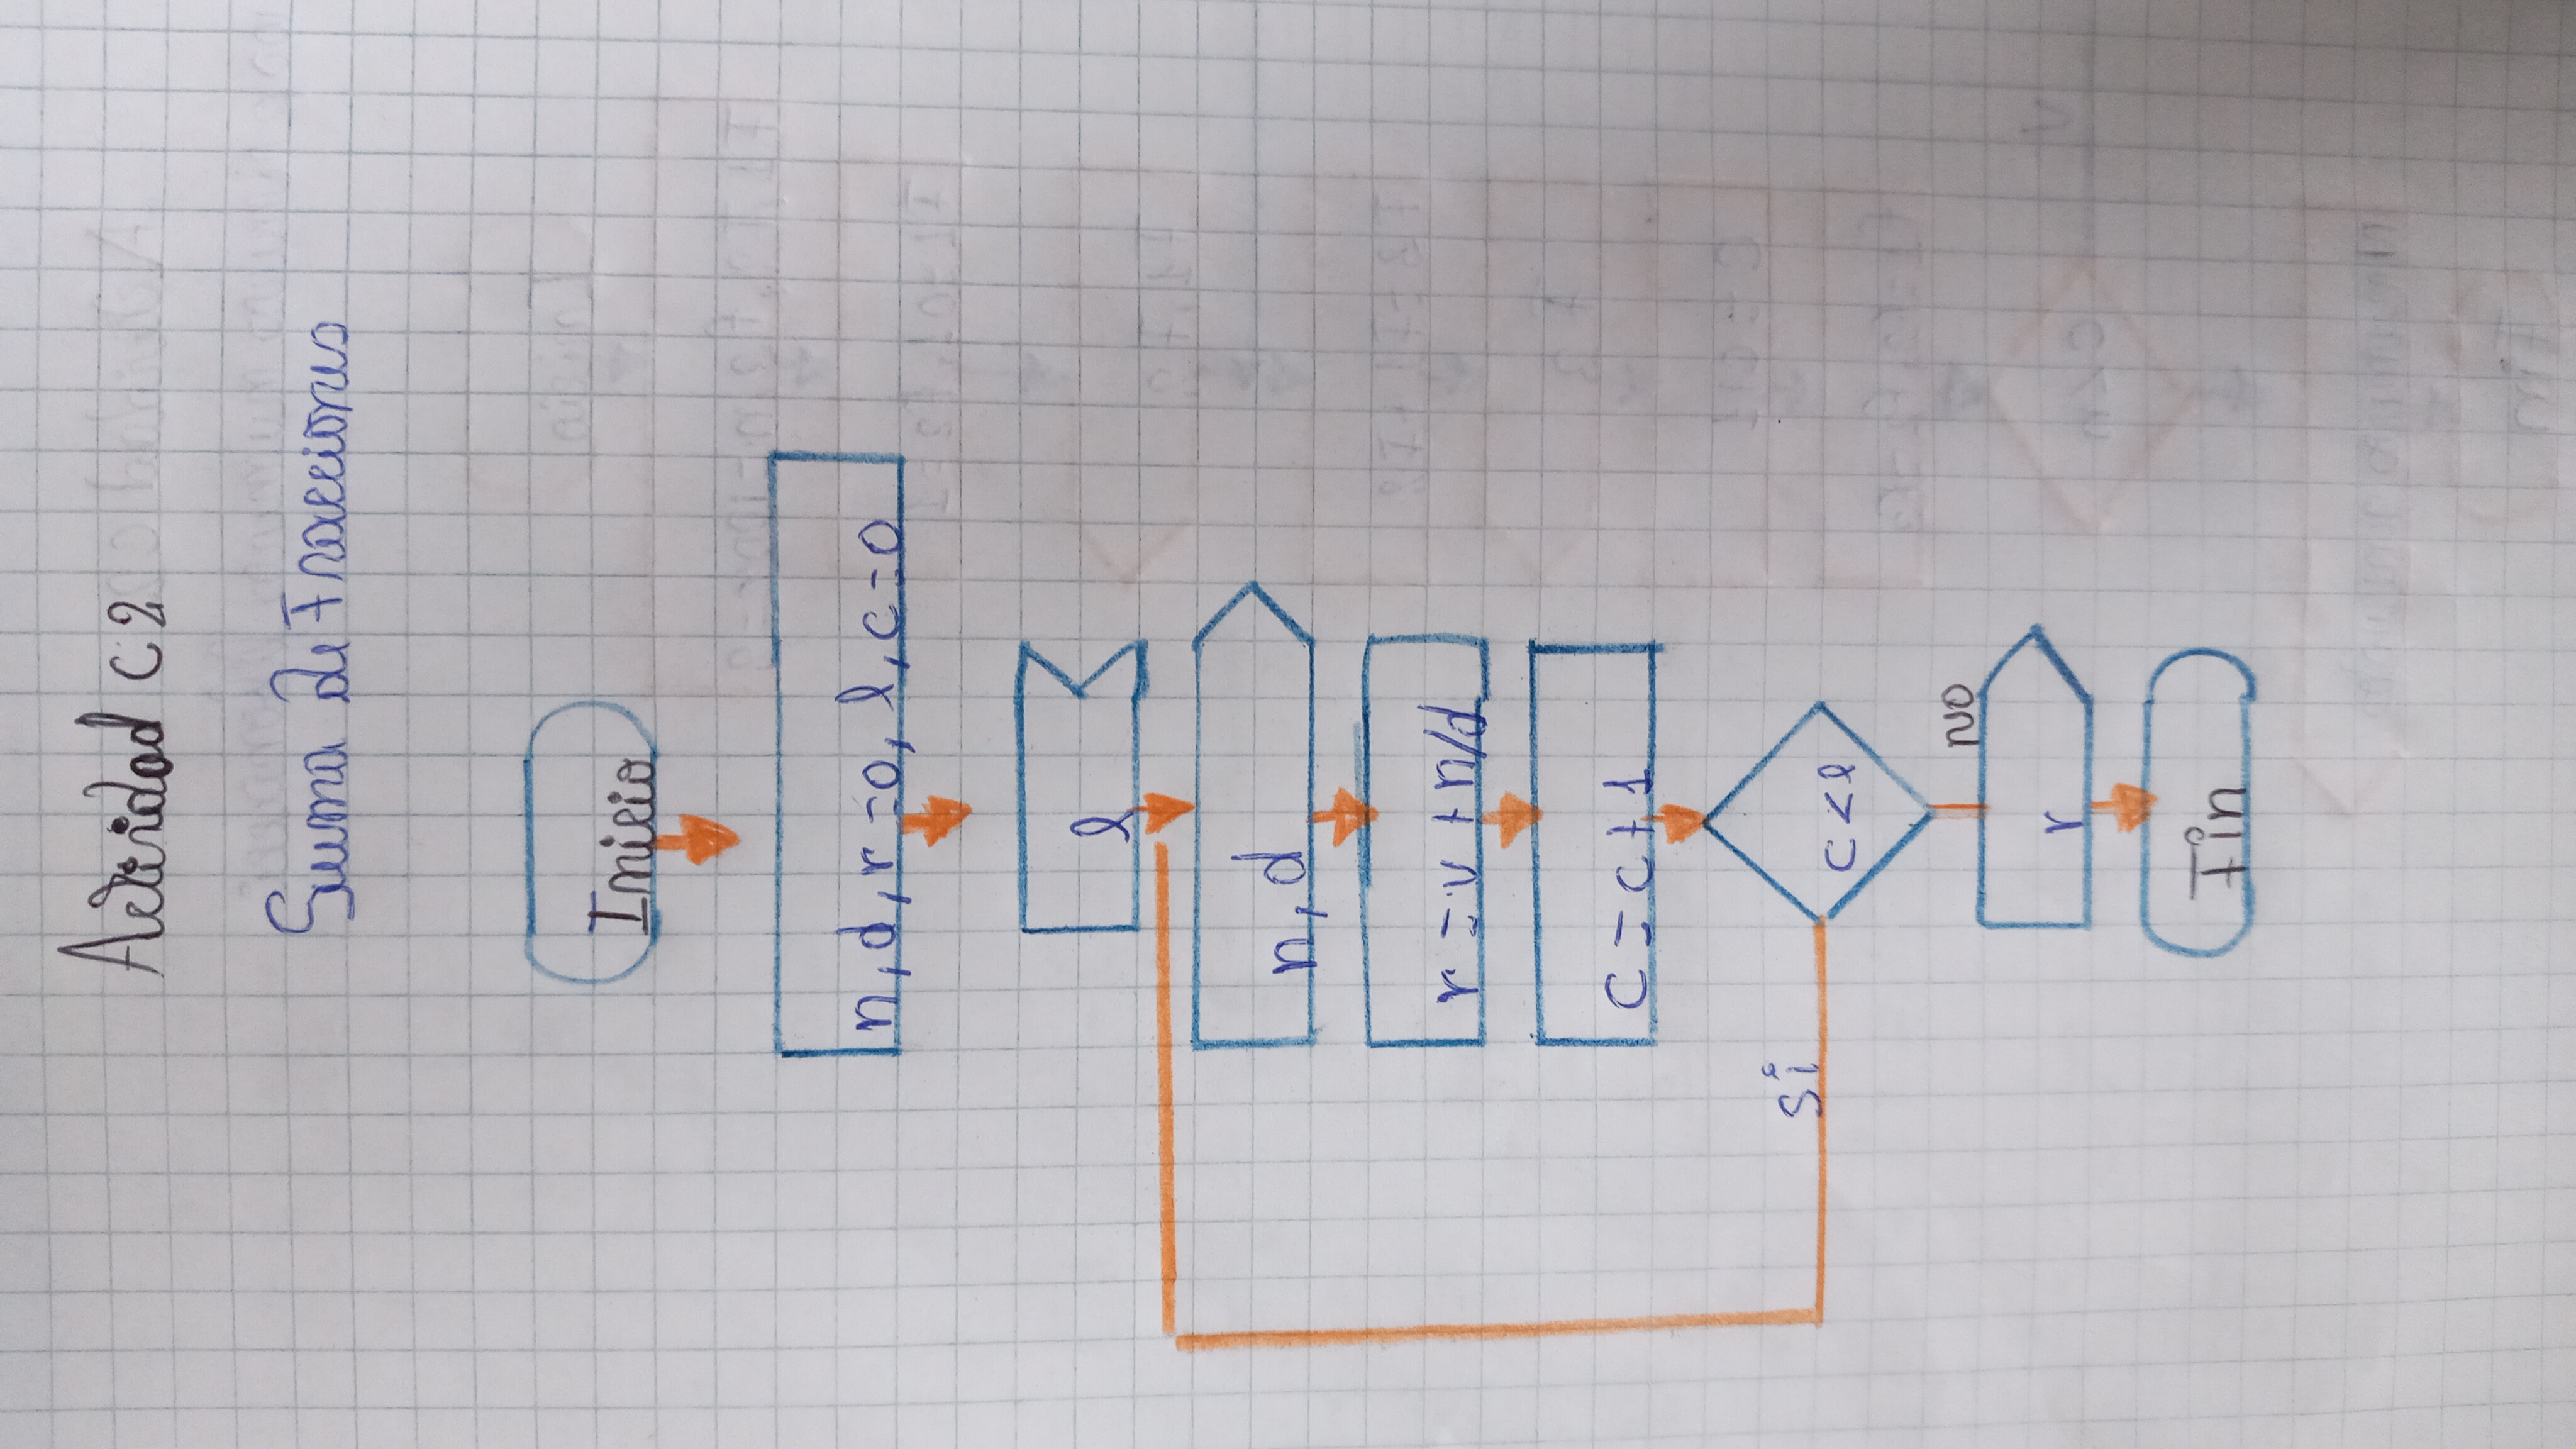 Actividad C2
Suma de Fracciones
Inicio
n, d, r=0, l, c=0
l
n, d
r = v + n/d
c = c + 1
si
c < l
NO
r
Fin